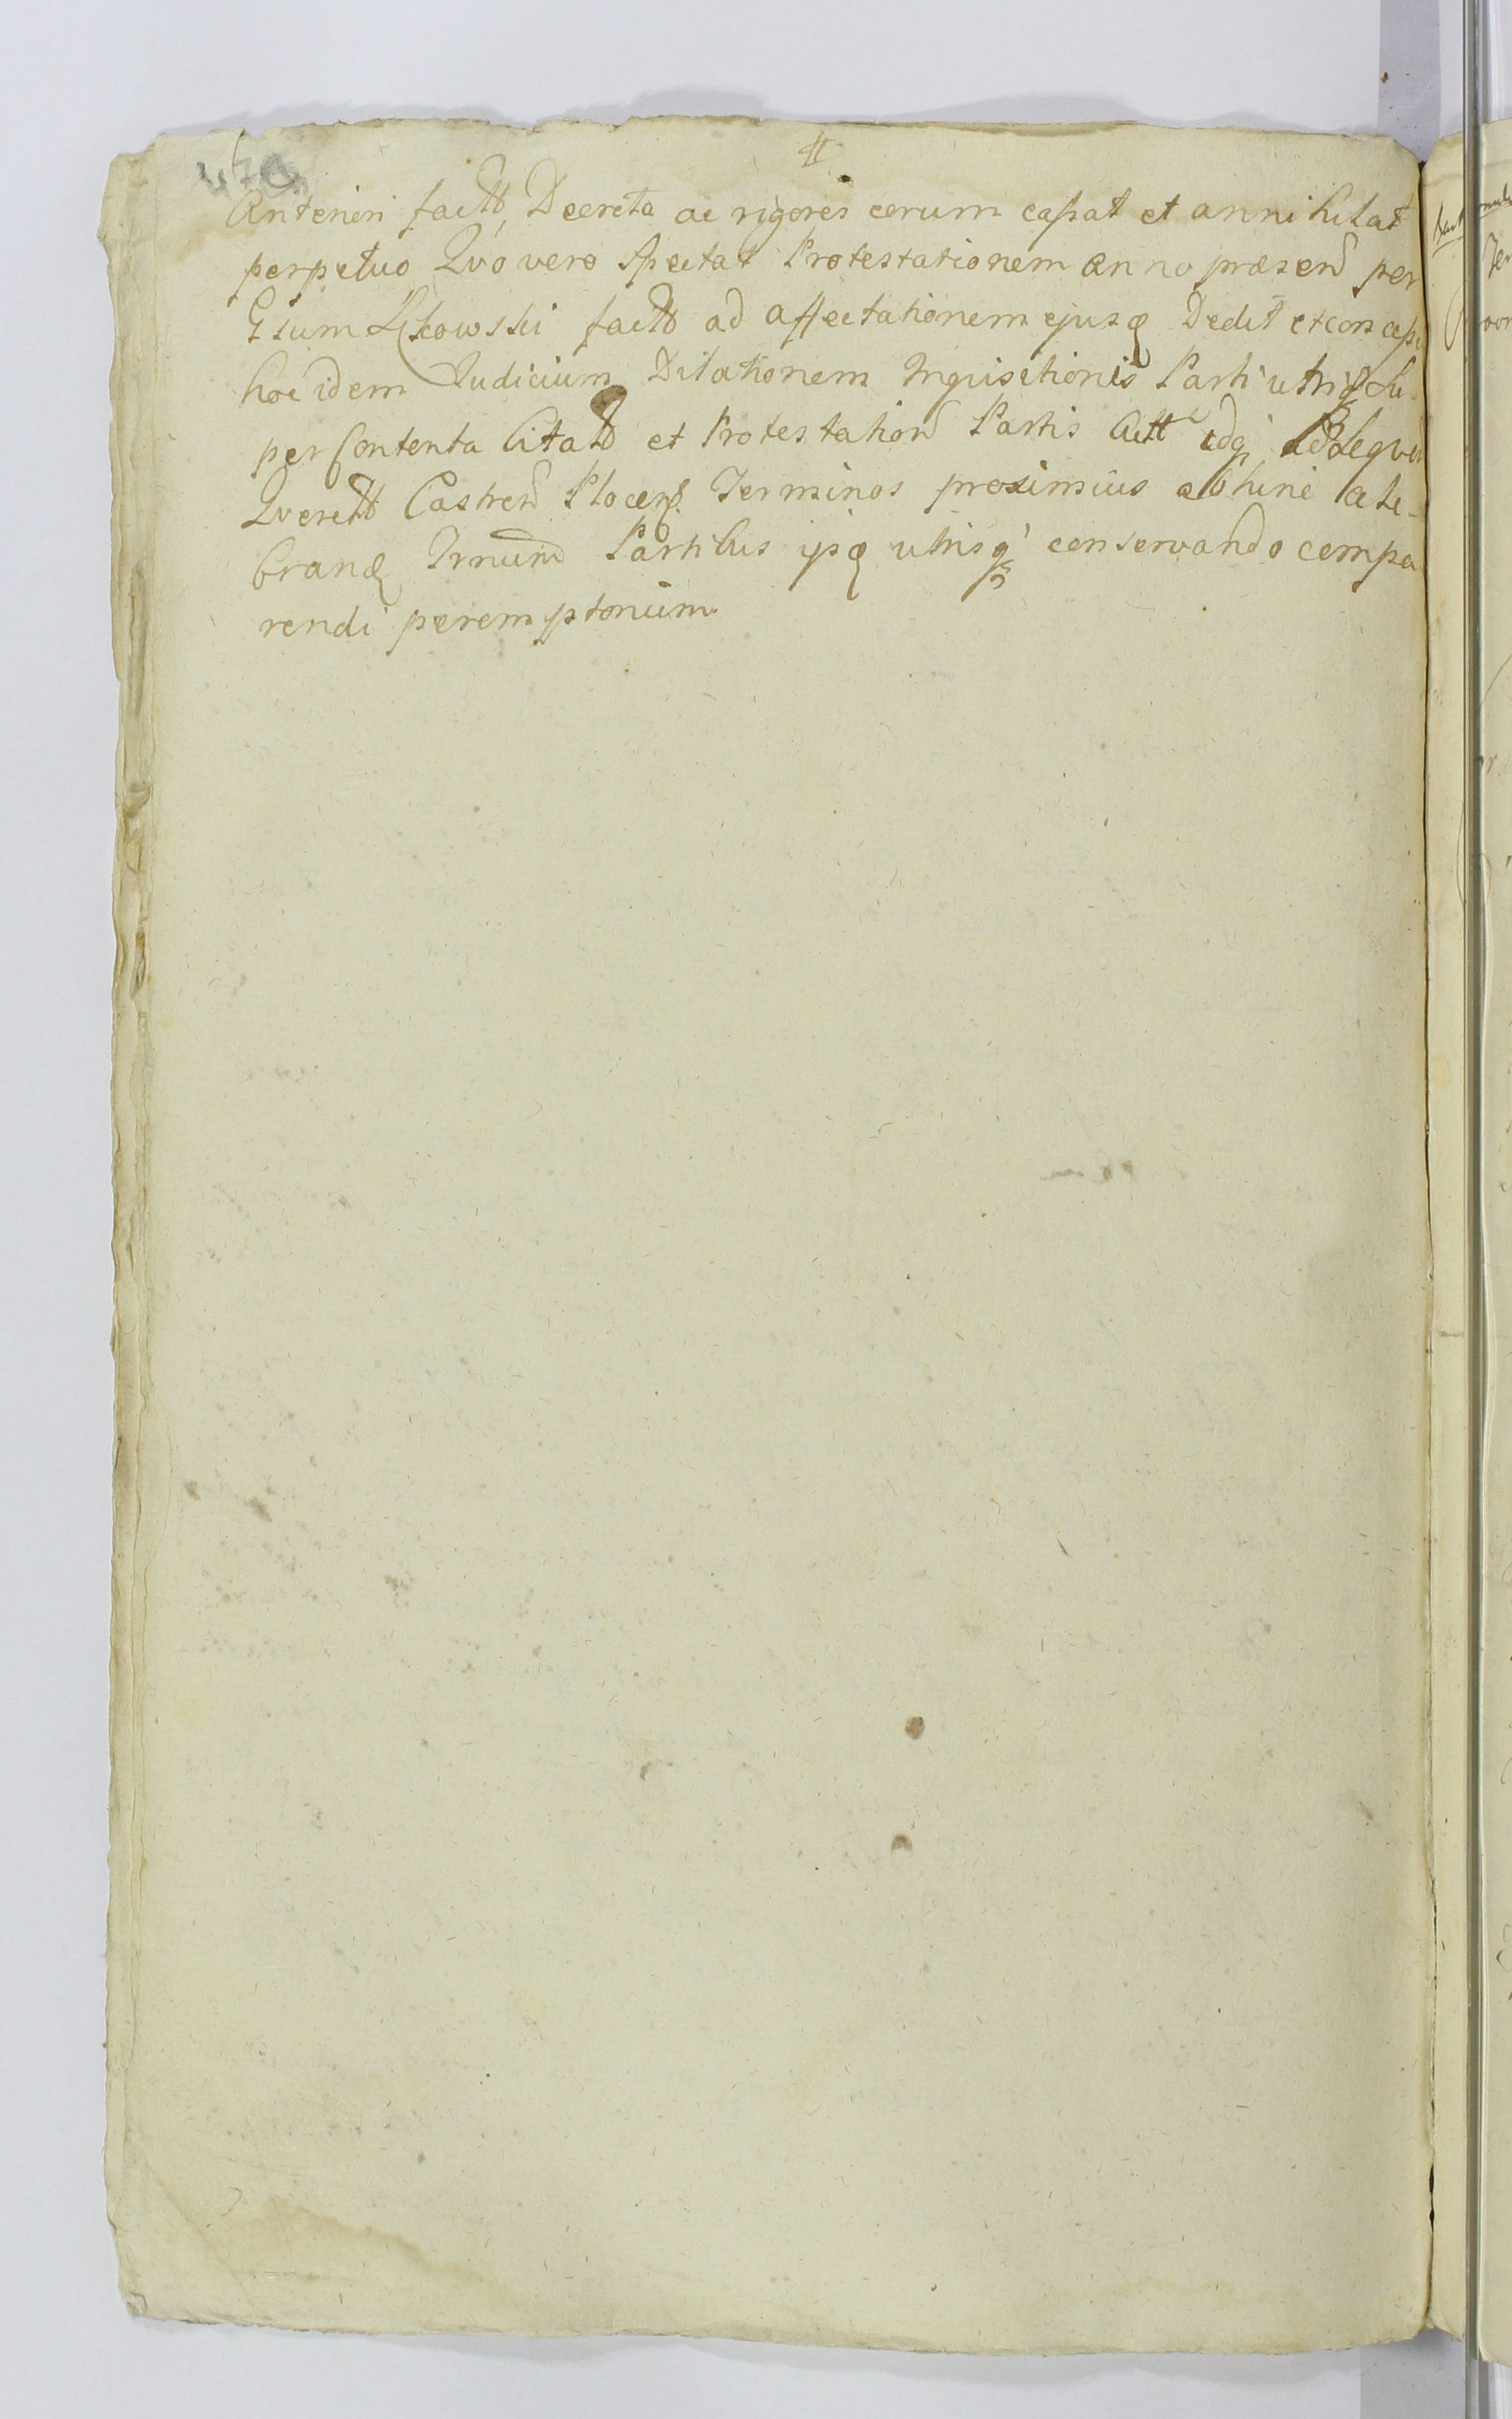 #
Anteriori factt Decreta ac rigores eorum cassat et annihilat
perpetuo Qvo vero spectat Protestationem anno præsen per
Gsum Liscowski factt ad affectationem ejusq Dedit et concess
hoc idem Judicium Dilationem Inquisitionis Parti utriq su-
per Contenta Citatt et Protestation Partis Actt idq
Qverett Castren Plocen Terminos proximius abhinc cele-
brand Trnum Partibus ipsq utrisq conservando compa
rendi peremptorium